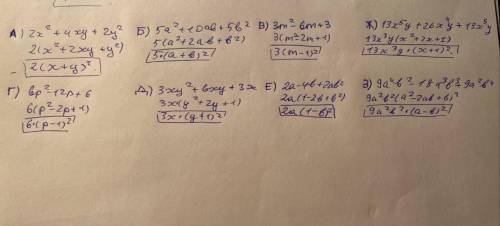 А) 2x² + 4xy + 2y²
2(x² + 2xy + y²)
2(x + y)²
Б) 5a² + 10ab + 5b²
5(a² + 2ab + b²)
5·(a + b)²
В) 3m² - 6m + 3
3(m² - 2m + 1)
3(m - 1)²
Ж) 13x⁵y + 26x⁴y + 13x³y
13x³y(x² + 2x + 1)
13x³y·(x + 1)²
Г) 6p² - 12p + 6
6(p² - 2p + 1)
6·(p - 1)²
Д) 3xy² + 6xy + 3x
3x(y² + 2y + 1)
3x·(y + 1)²
Е) 2a - 4b + 2ab²
2a(1 - 2b + b²)
2a(1 - b)²
З) 9a⁴b² - 18a³b³ + 9a²b⁴
9a²b²(a² - 2ab + b)²
9a²b²·(a - b)²